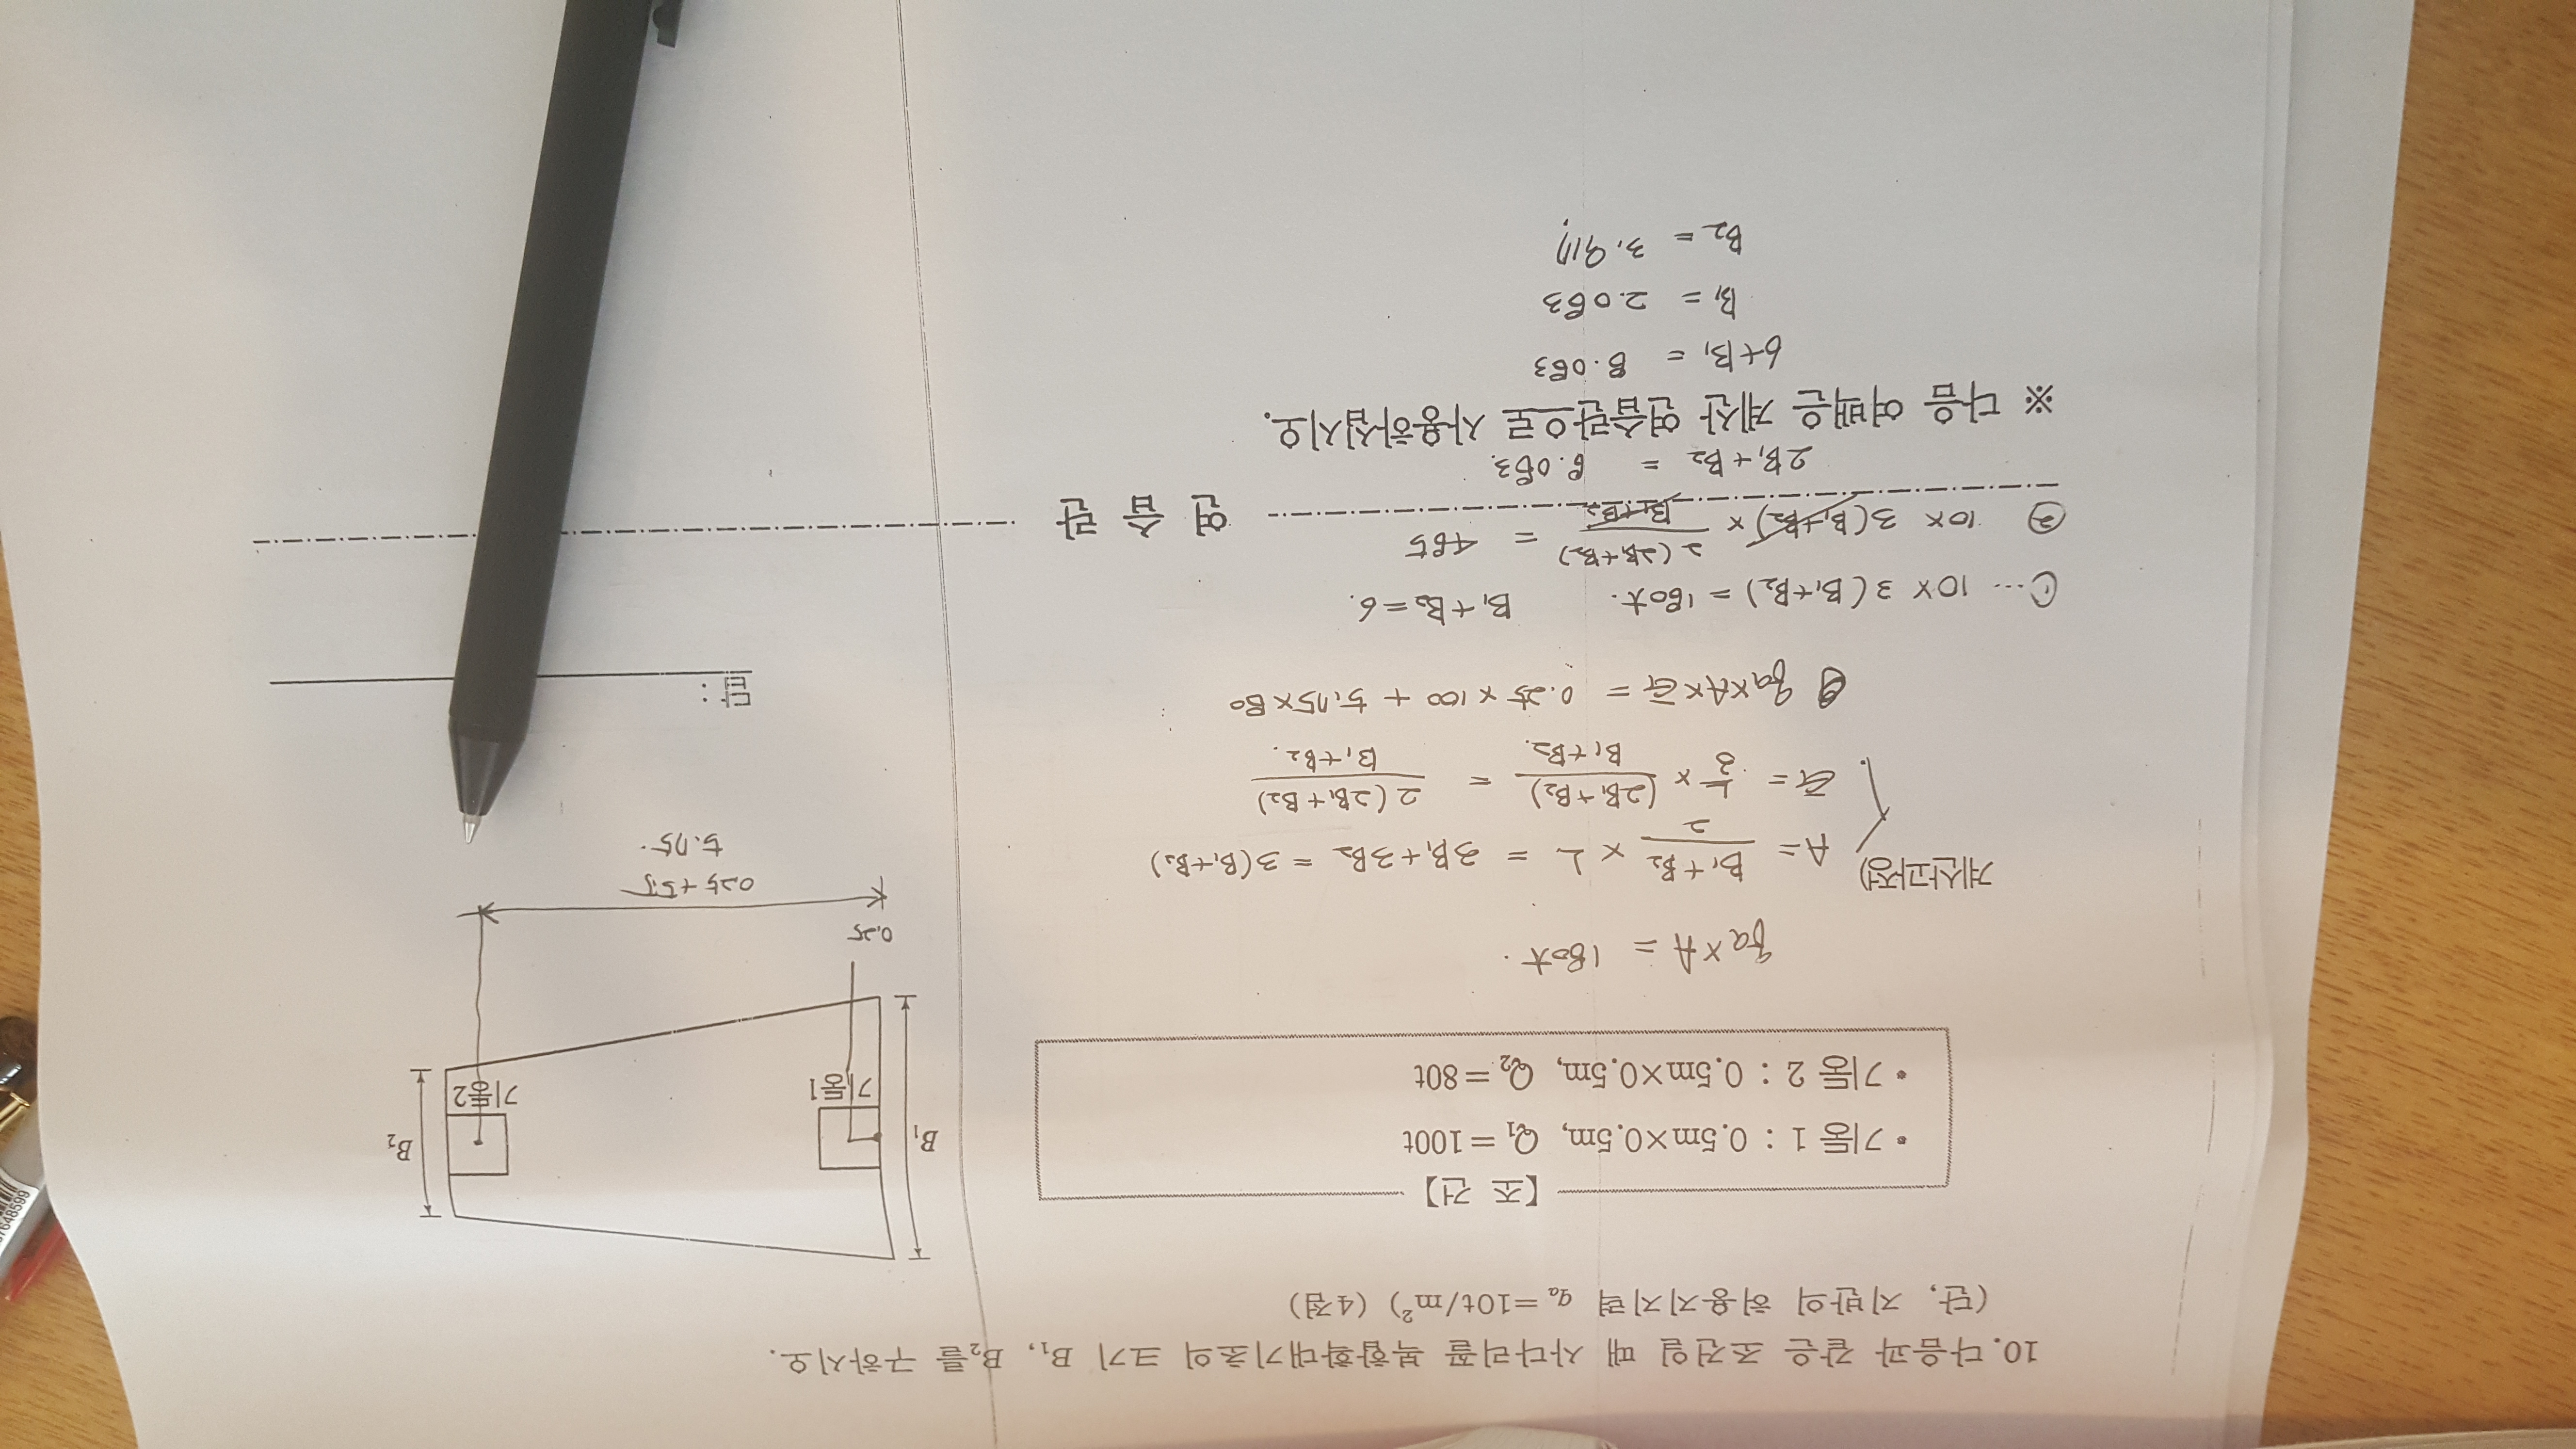 10. 다음과 같은 조건일 때 사다리꼴 복합확대기초의 크기 B₁, B₂를 구하시오.
(단, 지반의 허용지지력 qₐ=10t/m²) (4점)
【조 건】
• 기둥 1 : 0.5m×0.5m, Q₁=100t
• 기둥 2 : 0.5m×0.5m, Q₂=80t
B₁
기둥1
기둥2
B₂
0.25
0.25+5.5
5.75.
qa×A = 180t.
계산과정)
A = (B₁+B₂)/2 × L = 3B₁+3B₂ = 3(B₁+B₂)
= L/3 × (2B₁+B₂)/(B₁+B₂) = 2(2B₁+B₂)/(B₁+B₂)
qa×A× = 0.25×100 + 5.75×80
답 :
① ... 10×3(B₁+B₂) = 180t. B₁+B₂=6.
② 10×3(B₁+B₂)× 2(2B₁+B₂)/(B₁+B₂) = 485
연 습 란
2B₁+B₂ = 8.083.
※ 다음 여백은 계산 연습란으로 사용하십시오.
6+B₁ = 8.083
B₁ = 2.083
B₂ = 3.917